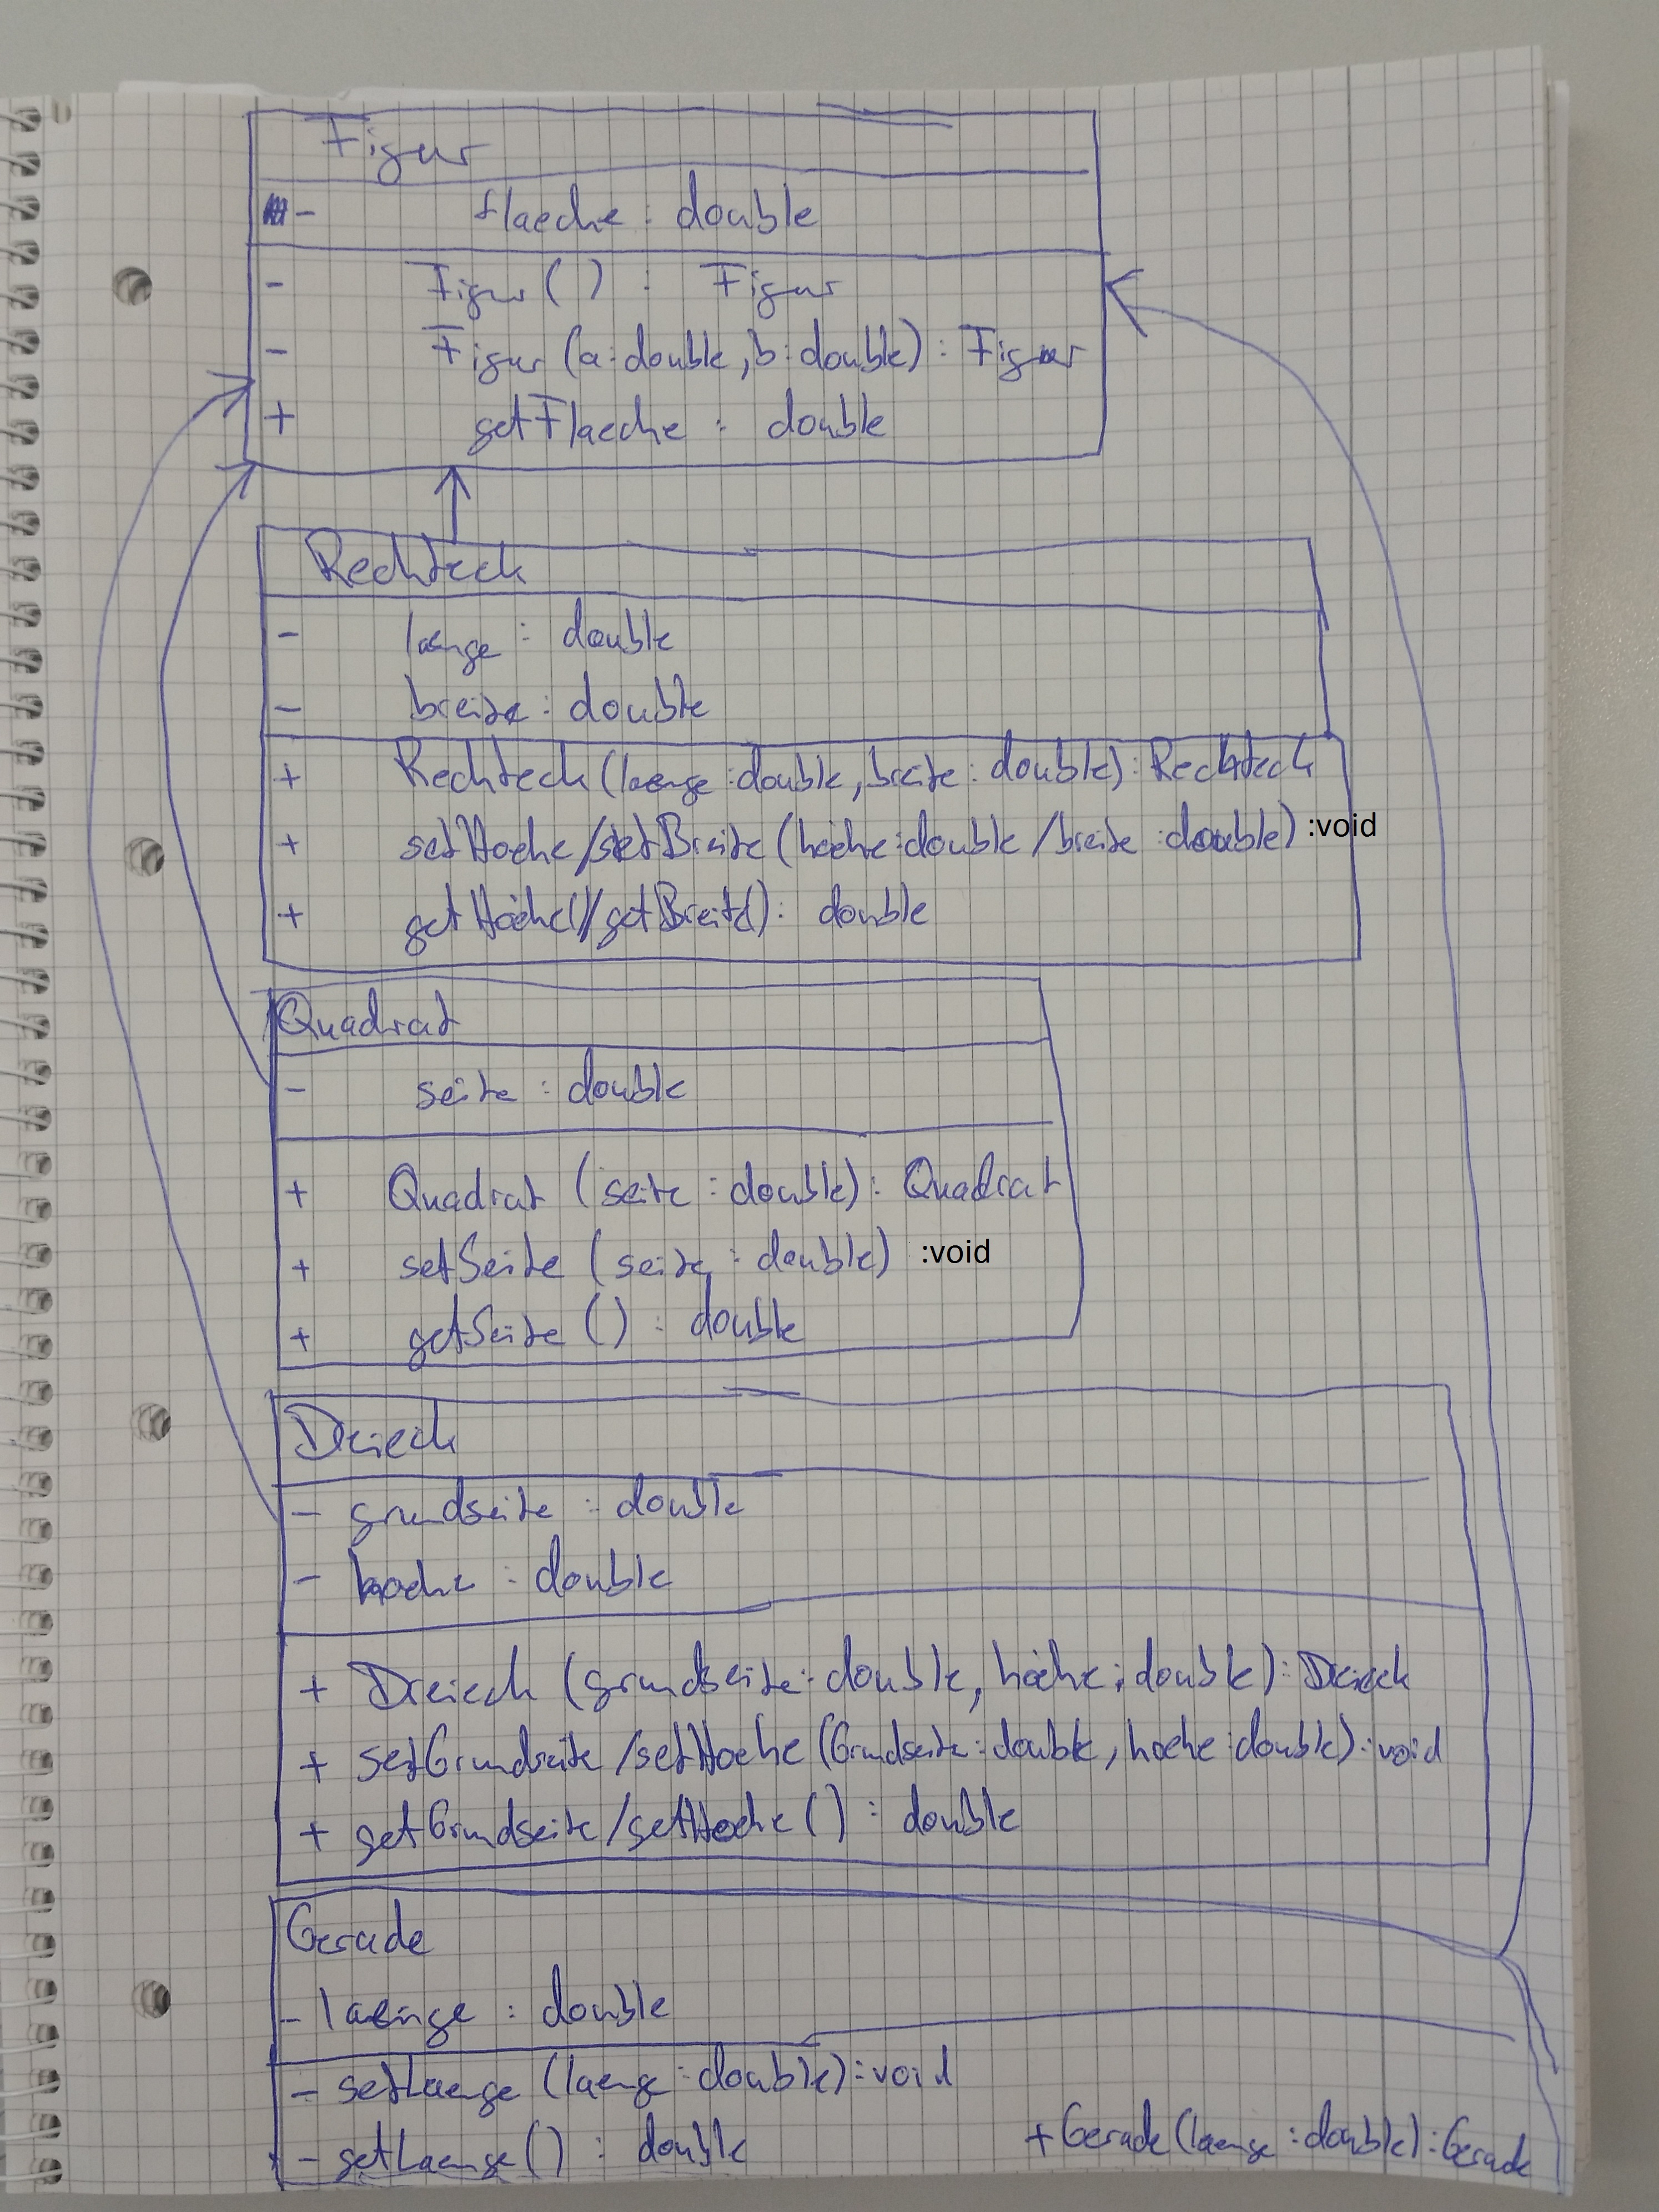 Figur
- flaeche : double
- Figur () : Figur
- Figur (a : double, b : double) : Figur
+ getFlaeche : double
Rechteck
- laenge : double
- breite : double
+ Rechteck (laenge : double, breite : double) : Rechteck
+ setHoehe/setBreite (hoehe : double / breite : double) :void
+ getHoehe()/getBreite() : double
Quadrat
- seite : double
+ Quadrat (seite : double) : Quadrat
+ setSeite (seite : double) :void
+ getSeite () : double
Dreieck
- grundseite : double
- hoehe : double
+ Dreieck (grundseite : double, hoehe : double) : Dreieck
+ setGrundseite /setHoehe (Grundseite : double, hoehe : double) : void
+ getGrundseite/getHoehe () : double
Gerade
- laenge : double
- setLaenge (laenge : double) : void
- getLaenge () : double
+ Gerade (laenge : double) : Gerade